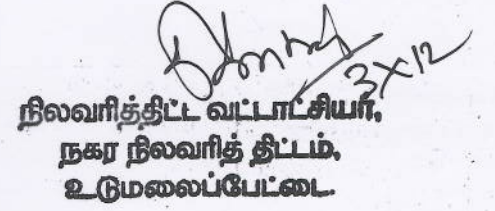 3X12
நிலவரித்திட்ட வட்டாட்சியர்,
நகர நிலவரித் திட்டம்,
உடுமலைப்பேட்டை.